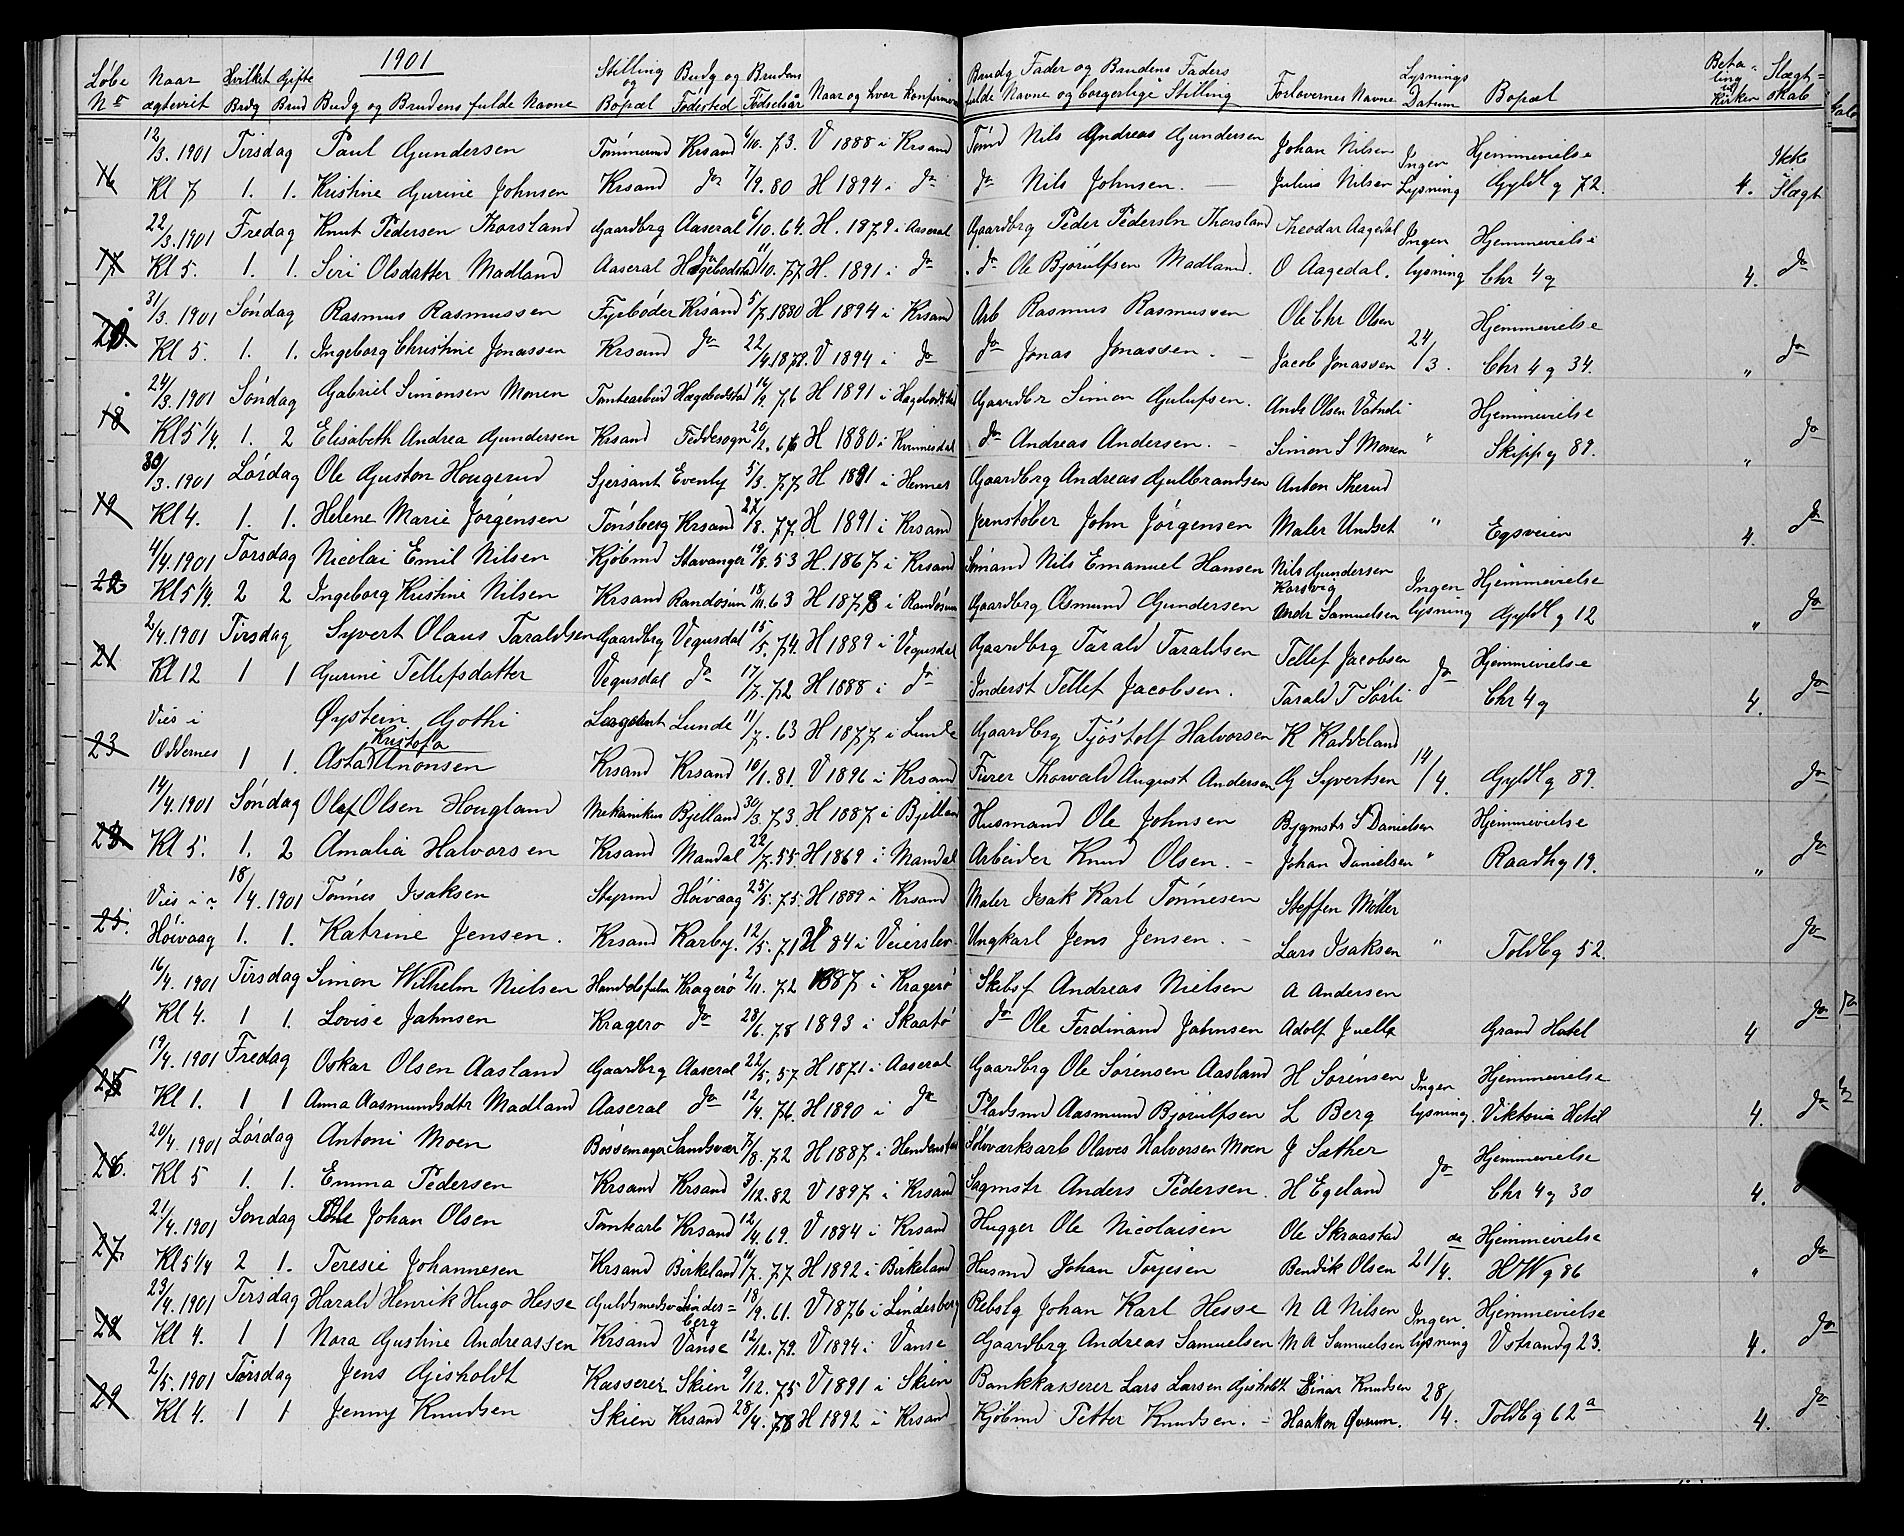 1901
Løbe No Naar ægteviet Hvilket Gifte Brdg Brud Brudg og Brudens fulde Navne Stilling og Bopæl Brudg og Fødested Brudens Fødselsår Naar og hvor konfirmer Brudg Fader og Brudens Faders fulde Navne og borgerlige Stilling Forlovernes Navne Lysnings Datum Bopæl Betaling Kirken Slægtskab
12/3. 1901 Tirsdag Paul Gundersen Tømmermd Krsand 6/10. 73. V 1888 i Krsand Tømd Nils Andreas Gundersen Johan Nilsen Ingen Hjemmevielse Ikke
16 Kl 7 1. 1. Kristine Gurine Johnsen Krsand do 7/9. 80 H 1894 i do do Nils Johnsen. Julius Nilsen Lysning Gyldl g 72. 4. Slægt
22/3. 1901 Fredag Knut Pedersen Thorsland Gaardbrg Aaseral 6/10. 64. H. 1879 i Aaseral Gaardbrg Peder Pedersen Thorsland Theodor Aagedal Ingen Hjemmevielse
17 Kl 5. 1. 1. Siri Olsdatter Madland Aaseral Hægebodstad 11/10. 77 H. 1891 i do do Ole Bjørulfsen Madland. O Aagedal. lysning Chr 4 g 4. do
31/3. 1901 Søndag Rasmus Rasmussen Fyrbøder Krsand 5/7. 1880 H 1894 i Krsand Arb Rasmus Rasmussen Ole Chr Olsen Hjemmevielse
20. Kl 5. 1. 1. Ingeborg Christine Jonassen Krsand do 22/4 1878. V 1894 i do do Jonas Jonassen. – Jacob Jonassen 24/3. Chr 4 g 34. " do
24/3. 1901 Søndag Gabriel Simonsen Monen Tomtearbeid Hægebodstad 16/9. 76 H 1891 i Hægebodstad Gaardbr Simon Gulufsen. Andr Olsen Vatneli Hjemmevielse
18 Kl 5 1/4. 1. 2 Elisabeth Andrea Gundersen Krsand Feddesogn 20/2. 66 H 1880 i Kvinesdal do Andreas Andersen. – Simon S Monen " Skipp g 89. " do
30/3. 1901 Lørdag Ole Guston Hougerud Sjersant Evenby 5/3. 77 H 1891 i Hemnes Gaardbrg Andreas Gulbrandsen Anton Therud
19 Kl 4. 1. 1. Helene Marie Jørgensen Tønsberg Krsand 27/8. 77. H 1891 i Krsand Jernstøber John Jørgensen Maler Undset " Egsveien 4. do
4/4. 1901 Torsdag Nicolai Emil Nilsen Kjøbmd Stavanger 19/8. 53 H. 1867 i Krsand Sømand Nils Emanuel Hansen Nils Gundersen Korsvig Ingen Hjemmevielse
22 Kl 5 1/4. 2 2 Ingeborg Kristine Nilsen Krsand Randøsun 18/11. 63 H 1878 i Randøsun Gaardbrg Osmund Gundersen Andr Samuelsen lysning Gyldl g 12 " do
2/4. 1901 Tirsdag Syvert Olaus Taraldsen Gaardbrg Vegusdal 15/5. 74. H 1889 i Vegusdal Gaardbrg Tarald Taraldsen Tellef Jacobsen do Hjemmevielse
21 Kl 12 1 1 Gurine Tellefsdatter Vegusdal do 17/7. 72 H 1888 i do Inderst Tellef Jacobsen. Tarald T Sørli Chr 4 g 4. do
Vies i Øystein Gothi Sergeant Lunde 11/7. 63 H 1877 i Lunde Gaardbrg Tjøstolf Halvorsen K Kaddeland
23 Oddernes 1 1. Asta Kristofa Anonsen Krsand Krsand 10/1. 81. V 1896 i Krsand Furer Thorvald August Andersen G Syvertsen 14/4. Gyldl g 89. do
14/4. 1901 Søndag Olaf Olsen Hougland Mekanikus Bjelland 30/3. 73. H 1887 i Bjelland Husmand Ole Johnsen Bygmstr S Danielsen Hjemmevielse
23 Kl 5. 1. 2 Amalia Halvorsen Krsand Mandal 22/7. 55. H 1869 i Mandal Arbeider Knud Olsen. – Johan Danielsen " Raadh g 19. " do
Vies i 18/4. 1901 Tønnes Isaksen Styrmd Høivaag 25/5. 75. H 1889 i Krsand Maler Isak Karl Tønnesen Steffen Møller
25. Høivaag 1. 1. Katrine Jensen. Krsand Karby. 12/5. 71 84 i Veierslev. Ungkarl Jens Jensen. – Lars Isaksen " Toldb g 52. do
16/4. 1901 Tirsdag Simon Wilhelm Nielsen Handelsfulm Kragerø 2/11. 72 1887 i Kragerø Skibsf Andreas Nielsen A Andersen
" Kl 4. 1 1. Lovise Jahnsen Kragerø do 28/6. 78 1893 i Skaatø do Ole Ferdinand Jahnsen Adolf Juell Grand Hotel 4 do do
19/4. 1901 Fredag Oskar Olsen Aasland Gaardbrg Aaseral 22/5. 57 H 1871 i Aaseral Gaardbrg Ole Sørensen Aasland H Sørensen Ingen Hjemmevielse
25 Kl 1. 1 1 Anna Aasmundsdtr Madland Aaseral do 12/4. 76. H 1890 i do Pladsmd Aasmund Bjørulfsen L Berg lysning. Viktoria Hotel 4. do do
20/4. 1901 Lørdag Antoni Moen Bøssemager Sandsvær 7/8. 72 H 1887 i Sølvværksarb Olaves Halvorsen Moen J Sæther do Hjemmevielse
26. Kl 5 1. 1. Emma Pedersen Krsand Krsand 3/12. 82 V 1897 i Krsand Sagmstr Anders Pedersen. H Egeland Chr 4 g 30 4.
21/4. 1901 Søndag Ole Johan Olsen Tomtearb Krsand 12/4. 69. V 1884 i Krsand Hugger Ole Nicolaisen Ole Skraastad Hjemmevielse
27 Kl 5 1/4 2 1. Teresie Johannesen Krsand Birkeland 11/7. 77 H 1892 i Birkeland Husmd Johan Torjesen Bendik Olsen 21/4. H W g 86 " do
23/4. 1901 Tirsdag Harald Henrik Hugo Hesse Guldsmedsv Lindesberg 18/9. 61. V 1876 i Lindesberg Rebslg Johan Karl Hesse N A Nilsen Ingen Hjemmevielse
28 Kl 4. 1 1 Nora Gustine Andreassen Krsand Vanse 12/12. 79. V 1894 i Vanse Gaardbrg Andreas Samuelsen M A Samuelsen lysning V strandg 23. 4. do
2/5. 1901 Torsdag Jens Gjisholdt Kasserer Skien 9/12. 75 V 1891 i Skien Bankkasserer Lars Larsen Gjisholdt Einar Knudsen
29 Kl 4. 1 1 Jenny Knudsen Skien Krsand 28/4. 78 H 1892 i Krsand Kjøbmd Petter Knudsen. – Haakon Øvrum. 28/4. Toldb g 62 a 4. do